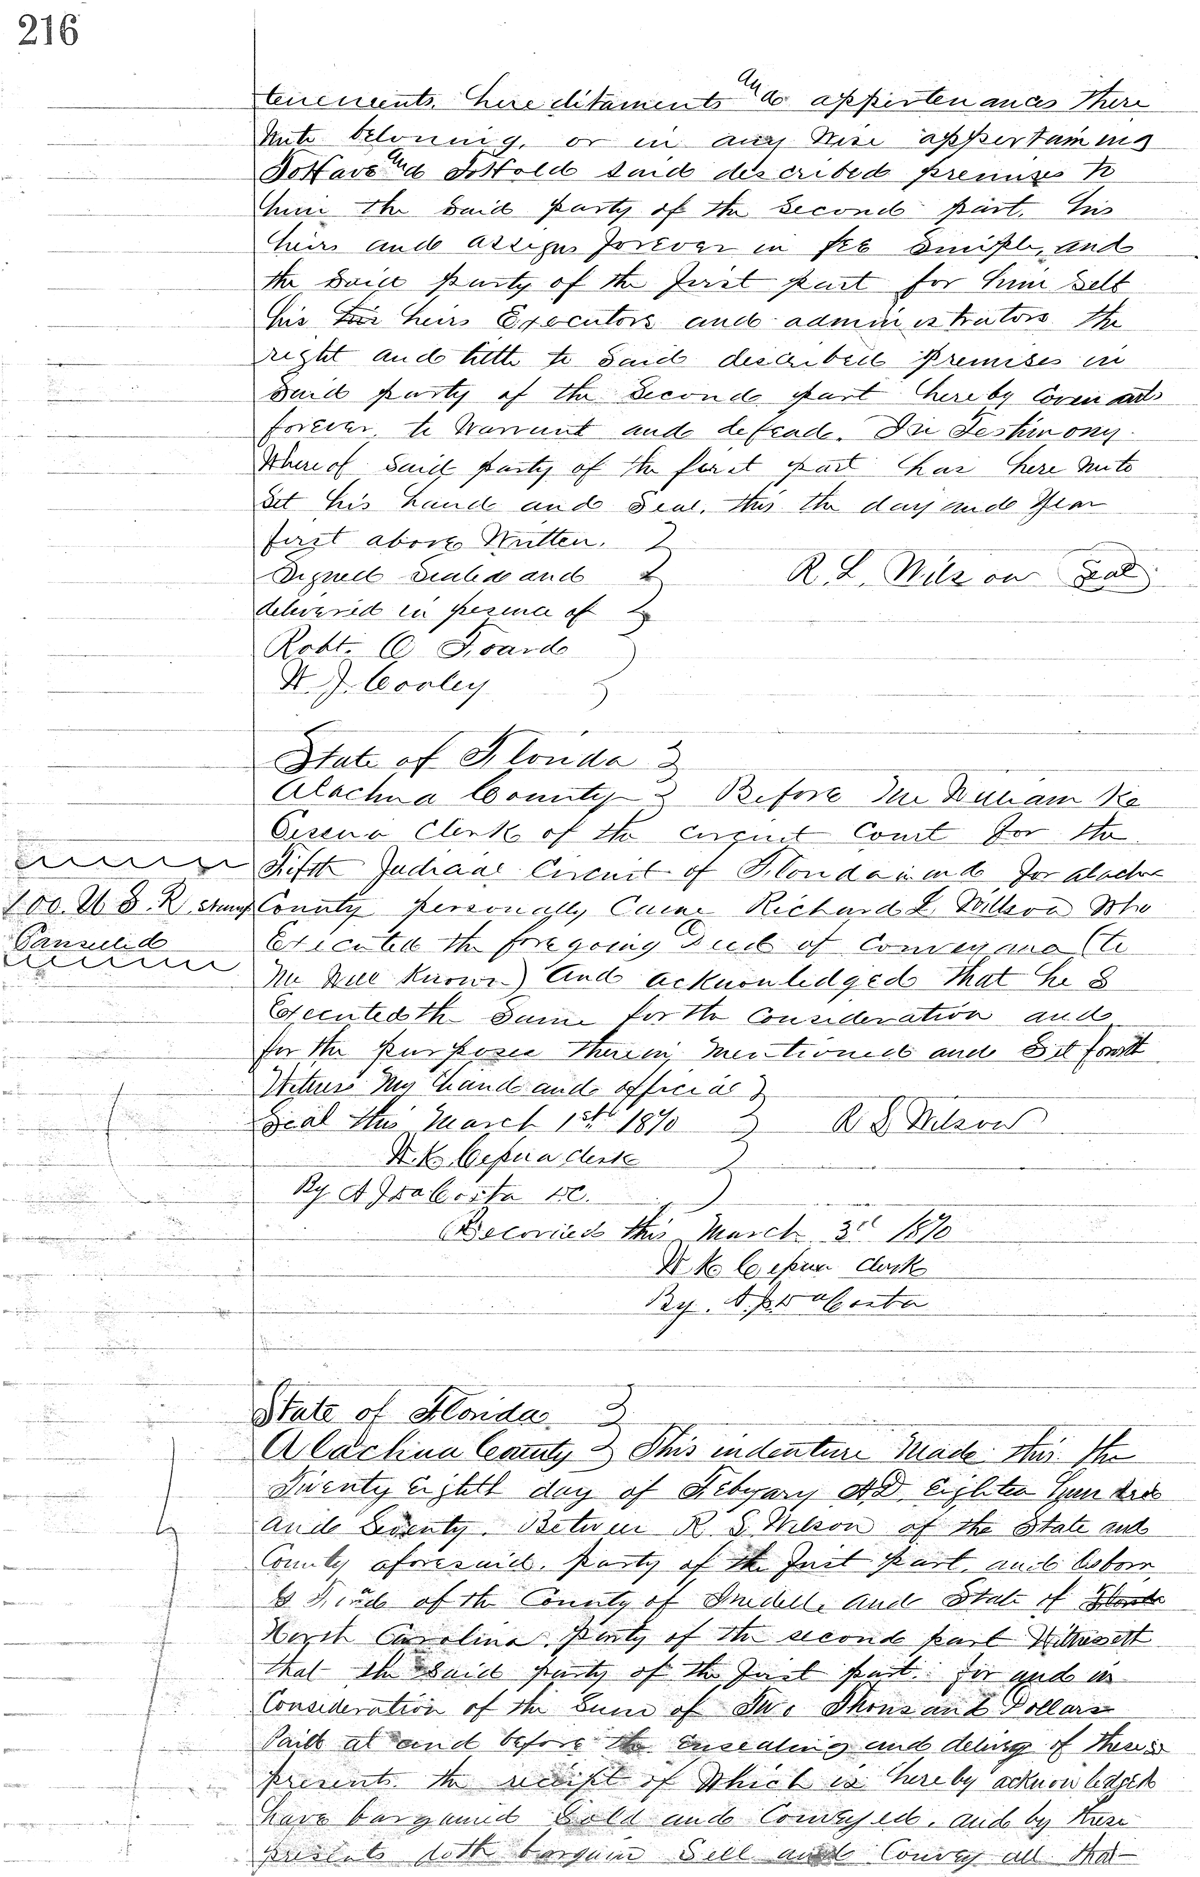 216
tenements. hereditaments and appertenances there
unto beloning, or in any wise appertaining
To Have and To Hold said described premises to
him the said party of the second part, his
heirs and assigns forever in fee simple, and
the said party of the first part for him self
his heirs Executors and administrators the
right and tittle to said described premises in
said party of the second part hereby covenants
forever to Warrant and defend. In Testimony
Whereof said party of the first part has here unto
Set his hand and Seal, this the day and Year
first above Written.
Signed Sealed and R. L. Wilson Seal
delivered in presence of
Robt. O Foard
W J. Cooley
State of Florida
Alachua County Before me William K
Cessna Clerk of the circuit Court for the
Fifth Judicial Circuit of Florida in and for alachua
100. U S. R. stamp County personally Came Richard L Willson Who
Canselled Executed the foregoing Deed of Conveyance (to
me well known) and acknowledged that he
Executed the Same for the Consideration and
for the purposes therein mentioned and Set forth
Witness My hand and official
Seal this March 1st 1870 R S Wilson
W. K. Cessna Clerk
By A J DaCosta DC.
Recorded this March 3d 1870
W K Cessna Clerk
By. A. J. DaCosta
State of Florida
Alachua County This indenture Made this the
Twenty Eighth day of Febuary AD. Eighteen Hundred
and Seventy. Between R S Wilson of the State and
County aforesaid. party of the first part, and Osborn
G Foard of the County of Iredell, and State of Florida
North Carolina. Party of the second part Witnesseth
that the said party of the first part. for and in
Consideration of the Sum of Two Thousand Dollars
Paid at and before the ensealing and delivery of these
presents. the receipt of Which is hereby acknowledged
have bargained Sold and Conveyed. and by these
presents doth bargain Sell and Convey all that